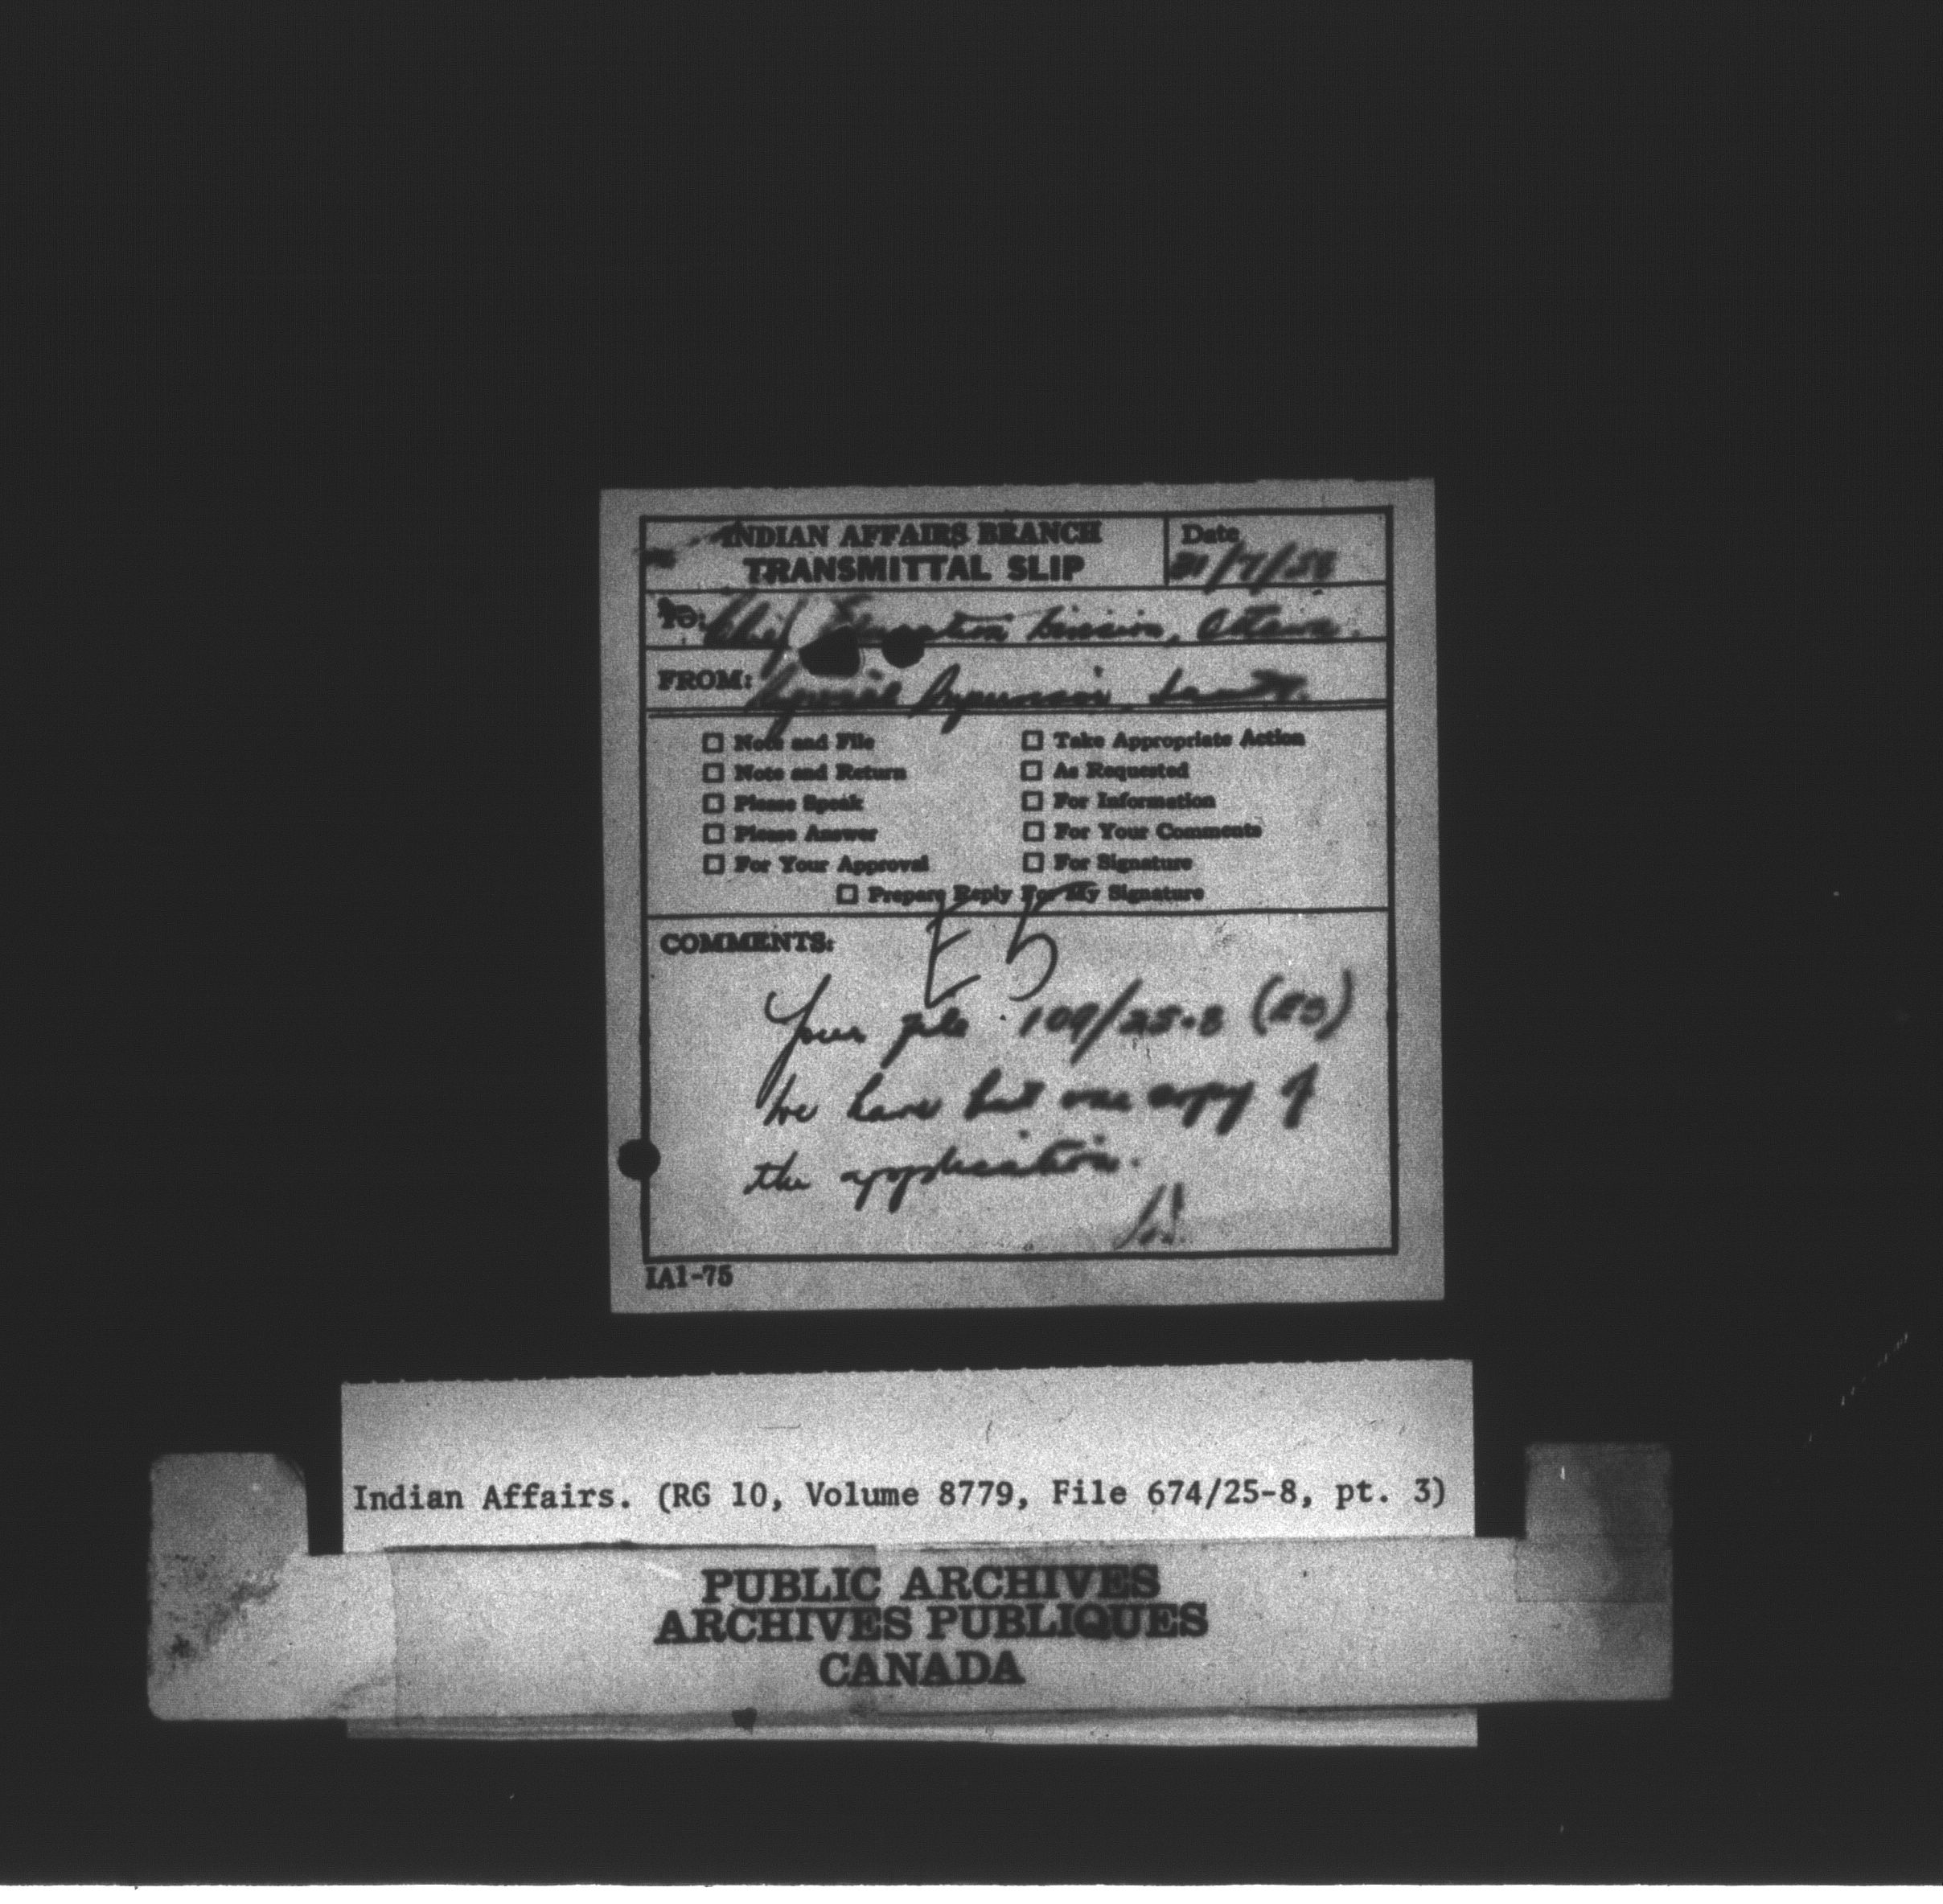 INDIAN AFFAIRS BRANCH
TRANSMITTAL SLIP
Date
31/7/58
TO: Chief Education Division, Ottawa.
FROM: Regional Supervisor,
☐ Note and File ☐ Take Appropriate Action
☐ Note and Return ☐ As Requested
☐ Please Speak ☐ For Information
☐ Please Answer ☐ For Your Comments
☐ For Your Approval ☐ For Signature
☐ Prepare Reply For My Signature
COMMENTS:
E5
Your file 109/25-8 (E3)
We have but one copy of
the application.
IA1-75
Indian Affairs. (RG 10, Volume 8779, File 674/25-8, pt. 3)
PUBLIC ARCHIVES
ARCHIVES PUBLIQUES
CANADA